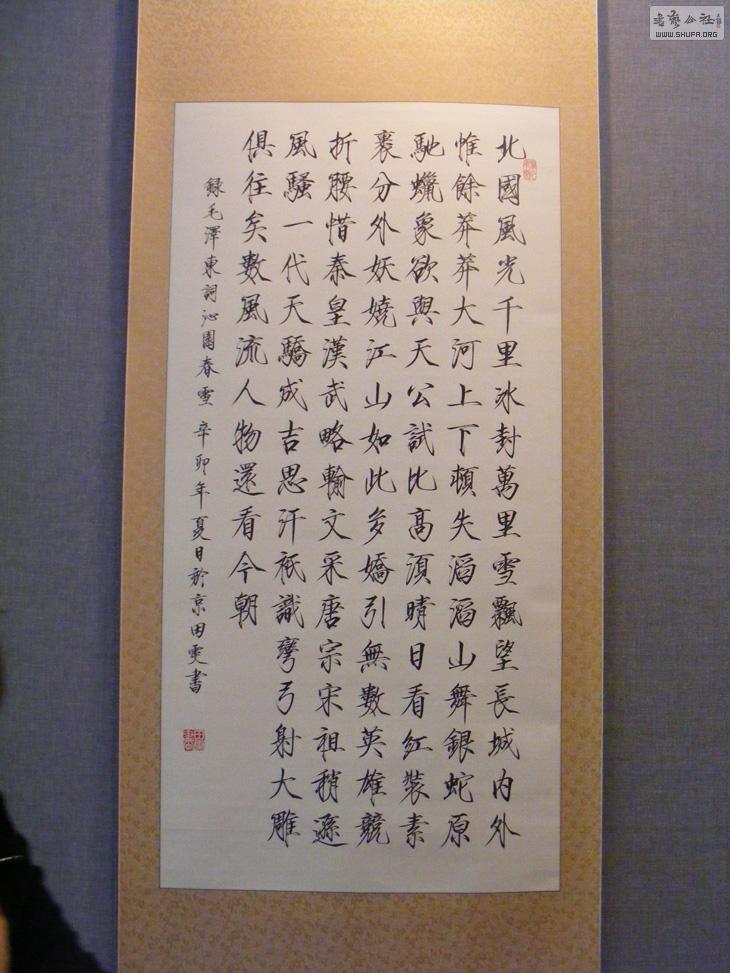 北國風光千里冰封萬里雪飄望長城內外
惟餘莽莽大河上下頓失滔滔山舞銀蛇原
馳蠟象欲與天公試比高須晴日看紅裝素
裹分外妖嬈江山如此多嬌引無數英雄競
折腰惜秦皇漢武略輸文采唐宗宋祖稍遜
風騷一代天驕成吉思汗祇識彎弓射大雕
俱往矣數風流人物還看今朝
録毛澤東詞沁園春雪 辛卯年夏日於京田雯書
書藝公社
WWW.SHUFA.ORG